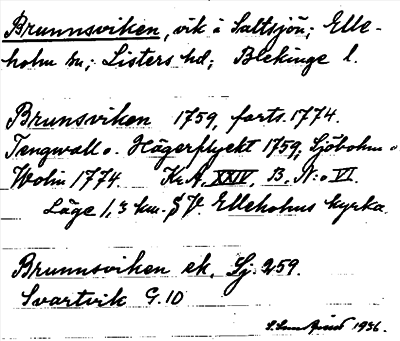 Brunnsviken, vik å Saltsjön; Elle-
holm sn; Listers hd; Blekinge l.
Brunsviken 1759, forts. 1774.
Tengwall o. Hägerflyckt 1759; Sjöbohm o
Wolin 1774. Kr.A. XXIV, B. N:o VI.
Läge 1,3 km. S V. Elleholms kyrka.
Brunnsviken ek. Sj. 259.
Svartvik G. 10
1936.